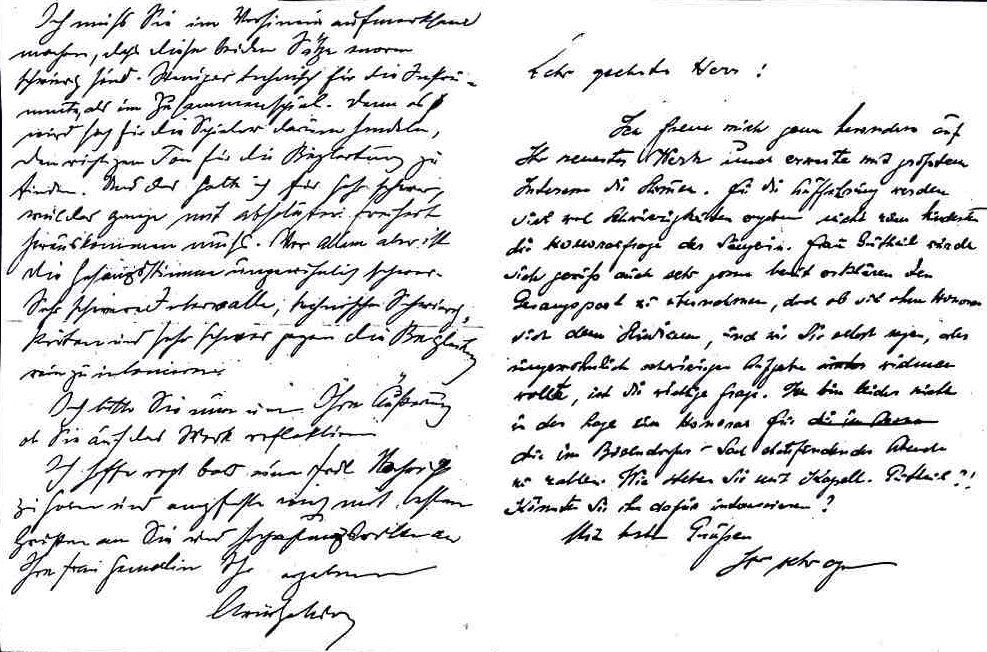 Ich muß Sie im Vorhinein aufmerksam
machen, daß diese beiden Sätze enorm
schwierig sind. Weniger technisch für die Instru-
mente, als im Zusammenspiel. Denn es
wird sich für die Spieler darum handeln,
den richtigen Ton für die Begleitung zu
finden. Und das halte ich für sehr schwer,
weil das ganze mit absoluter Freiheit
herauskommen muß. Vor allem aber ist
die Gesangsstimme ungewöhnlich schwer.
Sehr schwere Intervalle, technische Schwierig-
keiten und sehr schwer gegen die Begleitung
rein zu intonieren
Ich bitte Sie nun um Ihre Äußerung
ob Sie auf das Werk reflektieren
Ich hoffe recht bald eine Nachricht
zu hören und empfehle mich mit besten
Grüßen an Sie und
Ihre Frau Gemahlin Ihr ergebener
Sehr geehrter Herr!
Ich freue mich ganz besonders auf
Ihr neuestes Werk und erwarte mit größtem
Interesse die Stimmen. Für die Aufführung werden
sich wol Schwierigkeiten ergeben nicht zum mindesten
die Honorarfrage der Sängerin. Frau Gutheil würde
sich gewiß auch sehr gerne bereit erklären den
Gesangspart zu übernehmen, doch ob sie ohne Honorar
sich dem Studium, und wie Sie selbst sagen, der
ungewöhnlich schwierigen Aufgabe widmen
wollte, ist die wichtige Frage. Ich bin leider nicht
in der Lage ein Honorar für die im Darau
die im Bösendorfer-Saal stattfindenden Abende
zu zahlen. Wie stehen Sie mit Kapellm. Gutheil?!
Könnten Sie ihn dafür interessieren?
Mit besten Grüßen
Ihr sehr erg